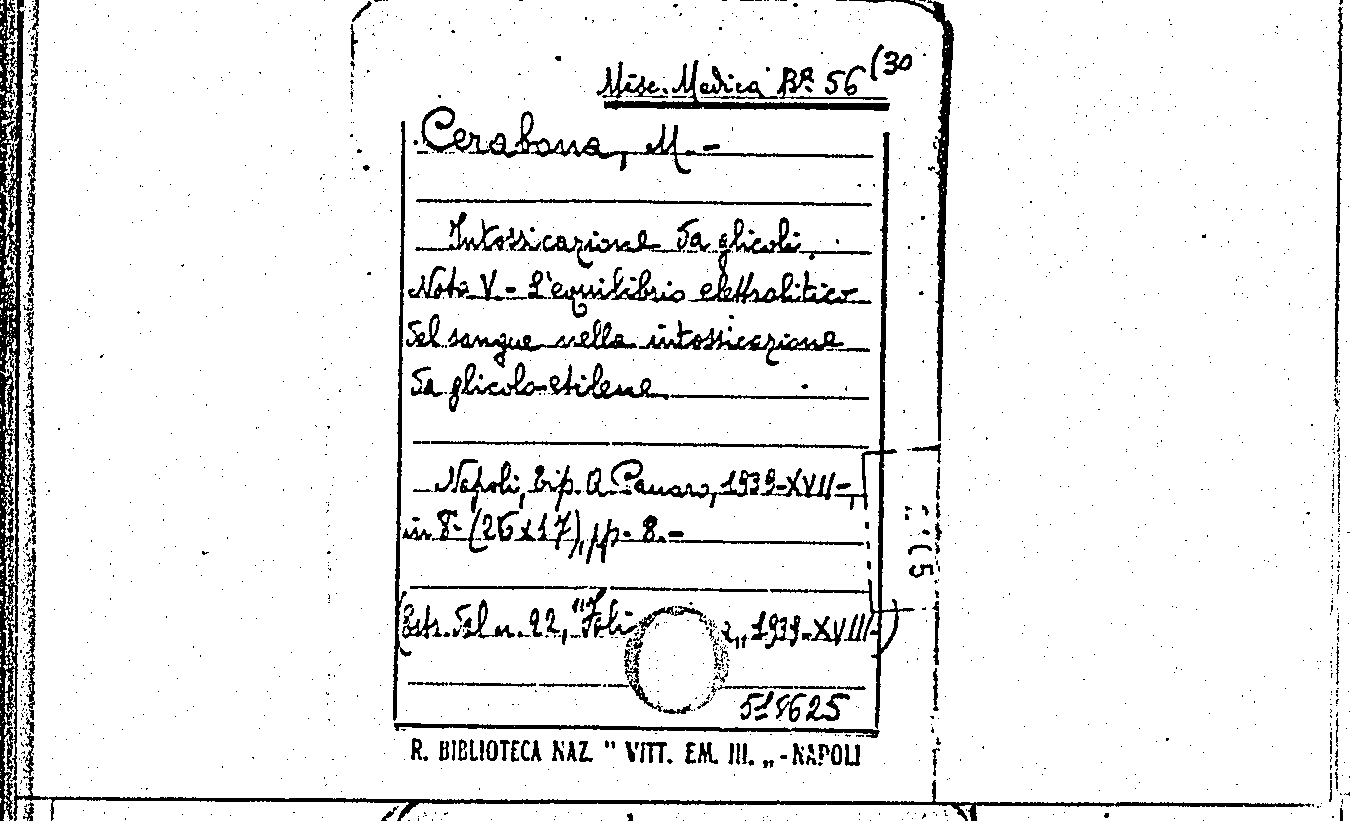 Misc. Medica Bª 56(30
Cerabona, M.-
Intossicazione da glicoli.
Nota V.- L'equilibrio elettrolitico
del sangue nella intossicazione
da glicolo-etilene.
Napoli, Tip. A. Cavaro, 1939-XVII-,
in 8- (25x17), pp. 8.-
(Estr. dal n. 22, "Foli 1939-XVIII-)
518625
R. BIBLIOTECA NAZ. " VITT. EM. III. „ - NAPOLI
(5